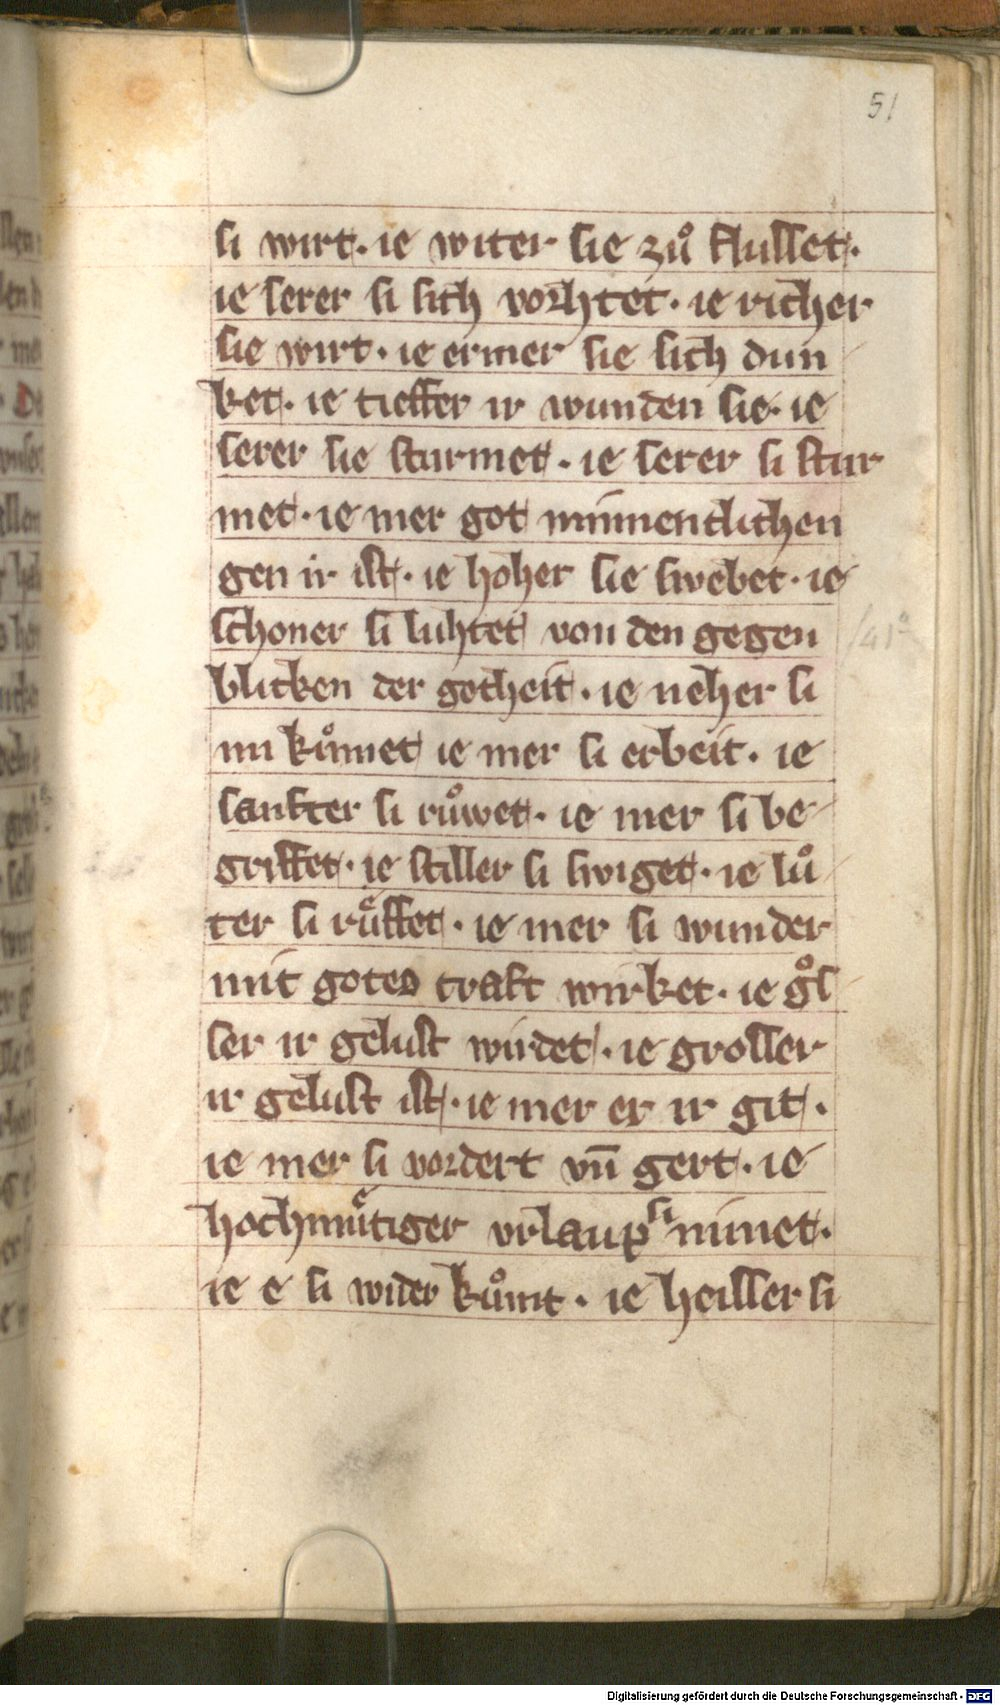 51
si wirt. ie witer sie zuͦ flusset.
ie serer si sich vorhtet. ie richer
sie wirt. ie ermer sie sich dun
ket. ie tieffer ir wunden sie. ie
serer sie sturmet. ie serer si stur
met. ie mer got minnenclichen
gen ir ist. ie hoher sie swebet. ie
schoner si luhtet von den gegen
blicken der gotheit. ie neher si
im kuͦmet ie mer si erbeit. ie
sanfter si ruͦwet. ie mer si be
griffet. ie stiller si swiget. ie luͦ
ter si ruͤffet. ie mer si wunder
mit gotes craft wirket. ie goͮs
ser ir gelust wirdet. ie grosser
ir gelust ist. ie mer er ir git.
ie mer si vordert vn̄ gert. ie
hochmuͤtiger vrlaup si nimet.
ie e si wider kuͦmt. ie heisser si
Digitalisierung gefördert durch die Deutsche Forschungsgemeinschaft - DFG